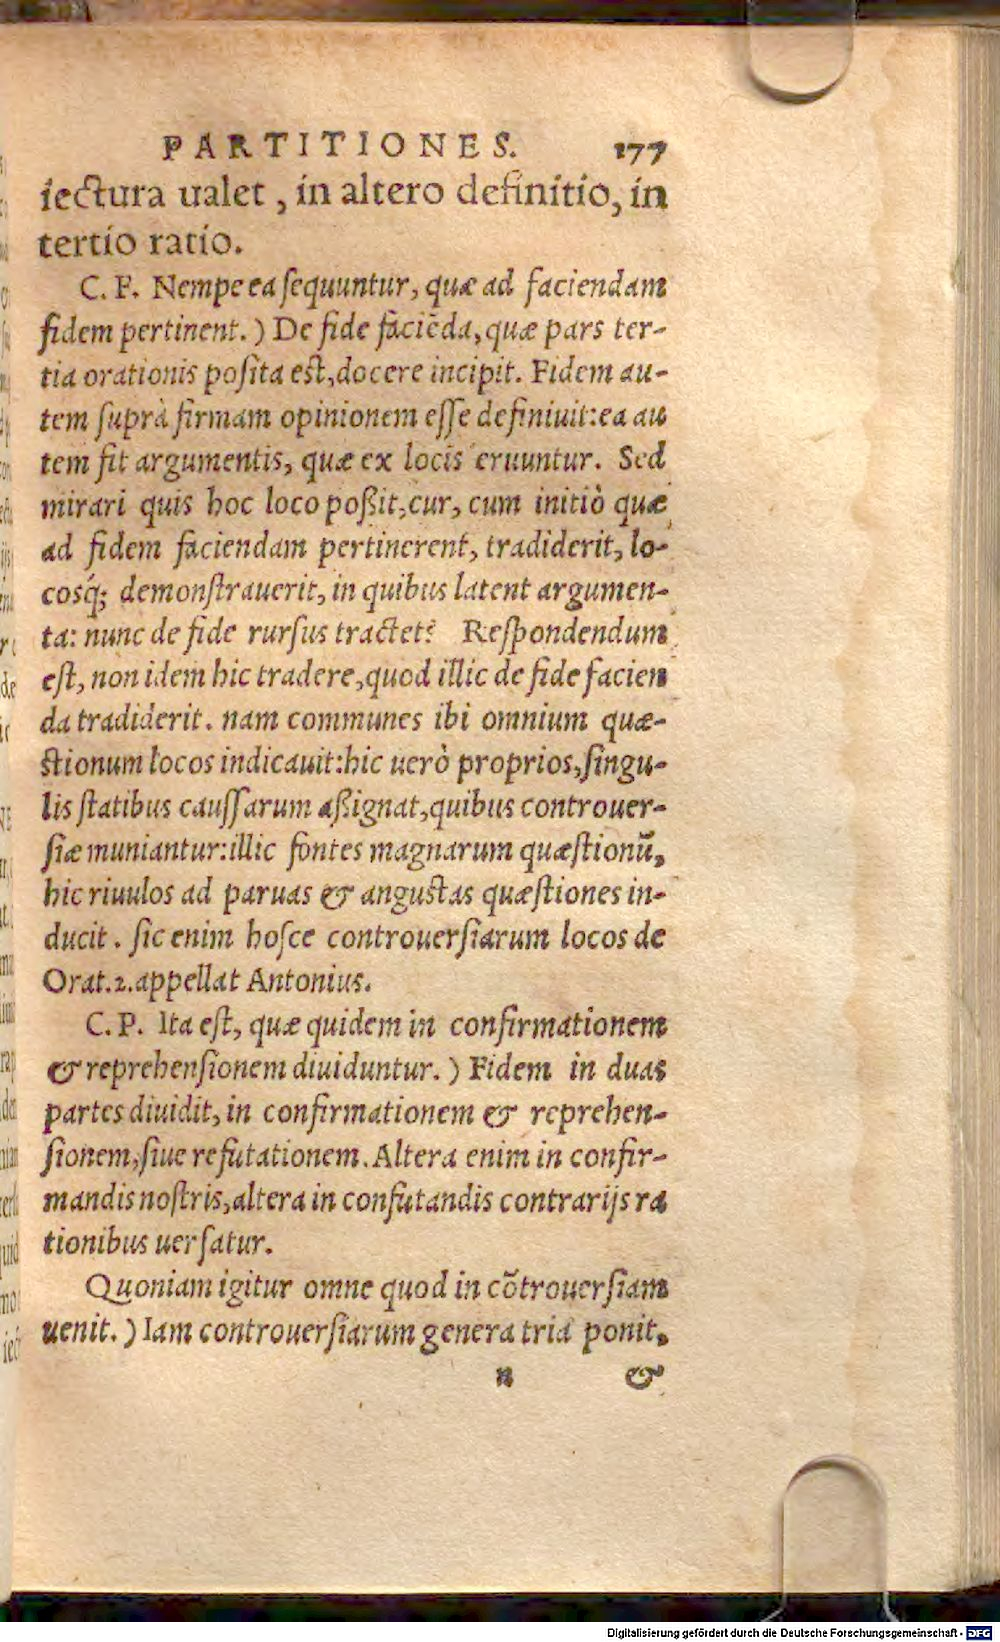 PARTITIONES. 177
iectura ualet, in altero definitio, in
tertio ratio.
C. F. Nempe ea sequuntur, quæ ad faciendam
fidem pertinent.) De fide faciẽda, quæ pars ter-
tia orationis posita est, docere incipit. Fidem au-
tem suprà firmam opinionem esse definiuit: ea au
tem fit argumentis, quæ ex locis eruuntur. Sed
mirari quis hoc loco poßit, cur, cum initiò quæ
ad fidem faciendam pertinerent, tradiderit, lo-
cosq́; demonstrauerit, in quibus latent argumen-
ta: nunc de fide rursus tractet? Respondendum
est, non idem hic tradere, quod illic de fide facien
da tradiderit. nam communes ibi omnium quæ-
stionum locos indicauit: hic uerò proprios, singu-
lis statibus caussarum aßignat, quibus controuer-
siæ muniantur: illic fontes magnarum quæstionũ,
hic riuulos ad paruas & angustas quæstiones in-
ducit. sic enim hosce controuersiarum locos de
Orat. 2. appellat Antonius.
C. P. Ita est, quæ quidem in confirmationem
& reprehensionem diuiduntur.) Fidem in duas
partes diuidit, in confirmationem & reprehen-
sionem, siue refutationem. Altera enim in confir-
mandis nostris, altera in confutandis contrarijs ra
tionibus uersatur.
Quoniam igitur omne quod in cõtrouersiam
uenit.) Iam controuersiarum genera tria ponit,
n &
Digitalisierung gefördert durch die Deutsche Forschungsgemeinschaft - DFG